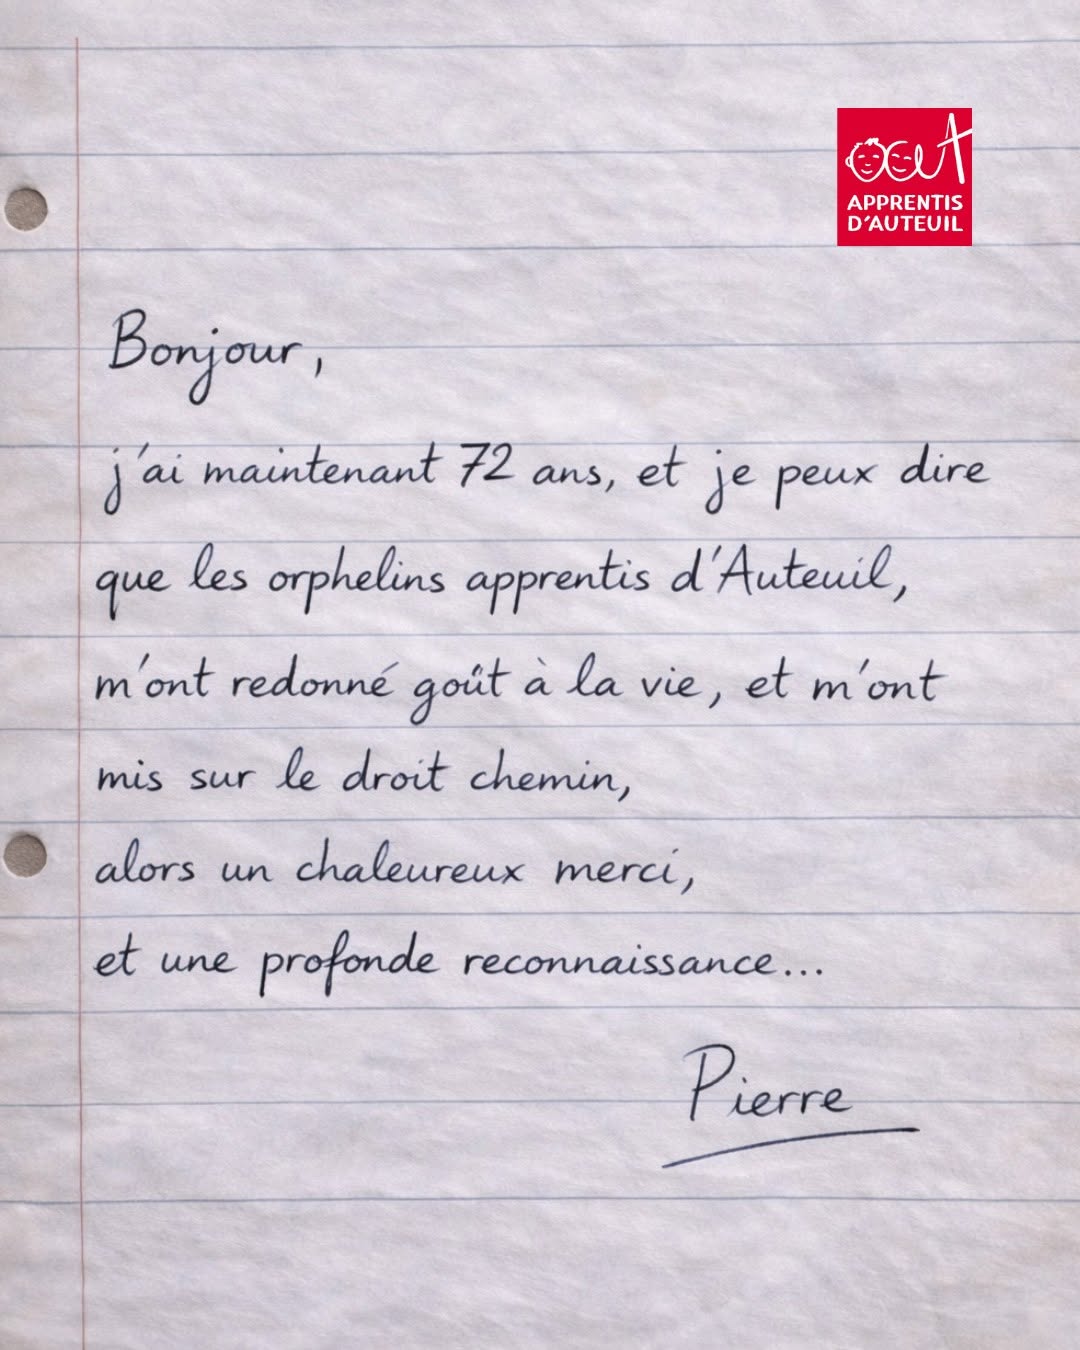 APPRENTIS
D'AUTEUIL
Bonjour,
j'ai maintenant 72 ans, et je peux dire
que les orphelins apprentis d'Auteuil,
m'ont redonné goût à la vie, et m'ont
mis sur le droit chemin,
alors un chaleureux merci,
et une profonde reconnaissance...
Pierre